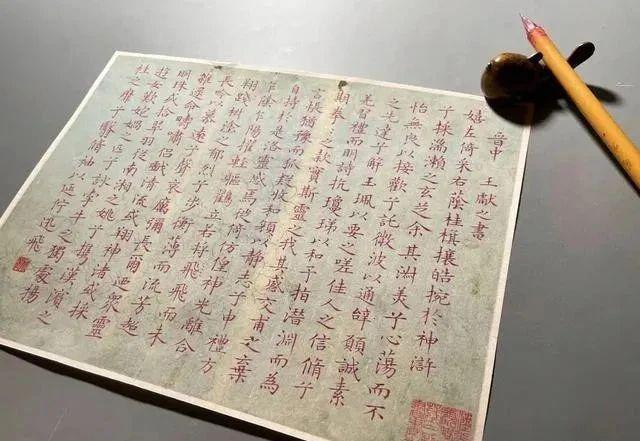 晉中 王獻之書
嬉左倚采右蔭桂旗攘皓捥於神滸
兮採湍瀨之玄芝余其淑美兮心蕩而不
怡無良以接歡兮託微波以通辭願誠素
之先達兮解玉珮以要之嗟佳人之信脩兮
羌習禮而明詩抗瓊珶以和予指潛淵而為
期奉之款實斯靈之我其感交甫之棄
言悵猶豫而狐疑收和顏以靜志兮申禮方
自持於是洛靈感焉徙倚仿偟神光離合
乍陰乍陽擢輕軀鶴立若將飛飛而未
翔踐椒塗之郁烈兮步衡薄而流芳超
長吟以慕遠兮聲哀厲彌長爾迺眾靈
雜遝命疇嘯侶戲清流或翔神渚或採
明珠或拾翠羽從南湘之二姚兮攜漢濱之
遊女歎之無匹兮詠牽牛之獨處揚
之靡兮翳脩袖以延佇迅飛